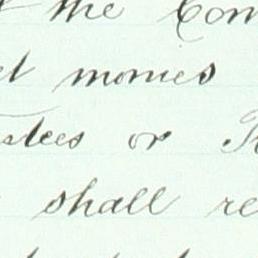 the Com
monies
stees or
shall re